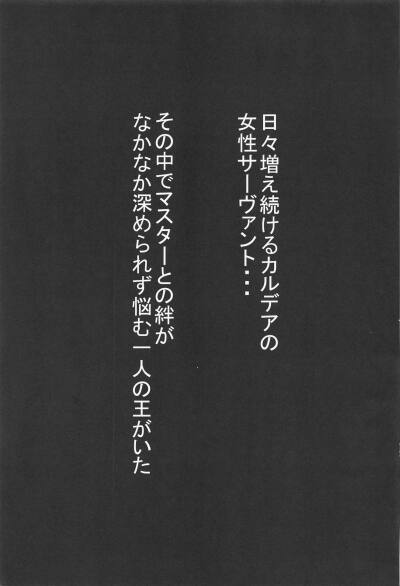 日々増え続けるカルデアの
女性サーヴァント・・・
その中でマスターとの絆が
なかなか深められず悩む一人の王がいた